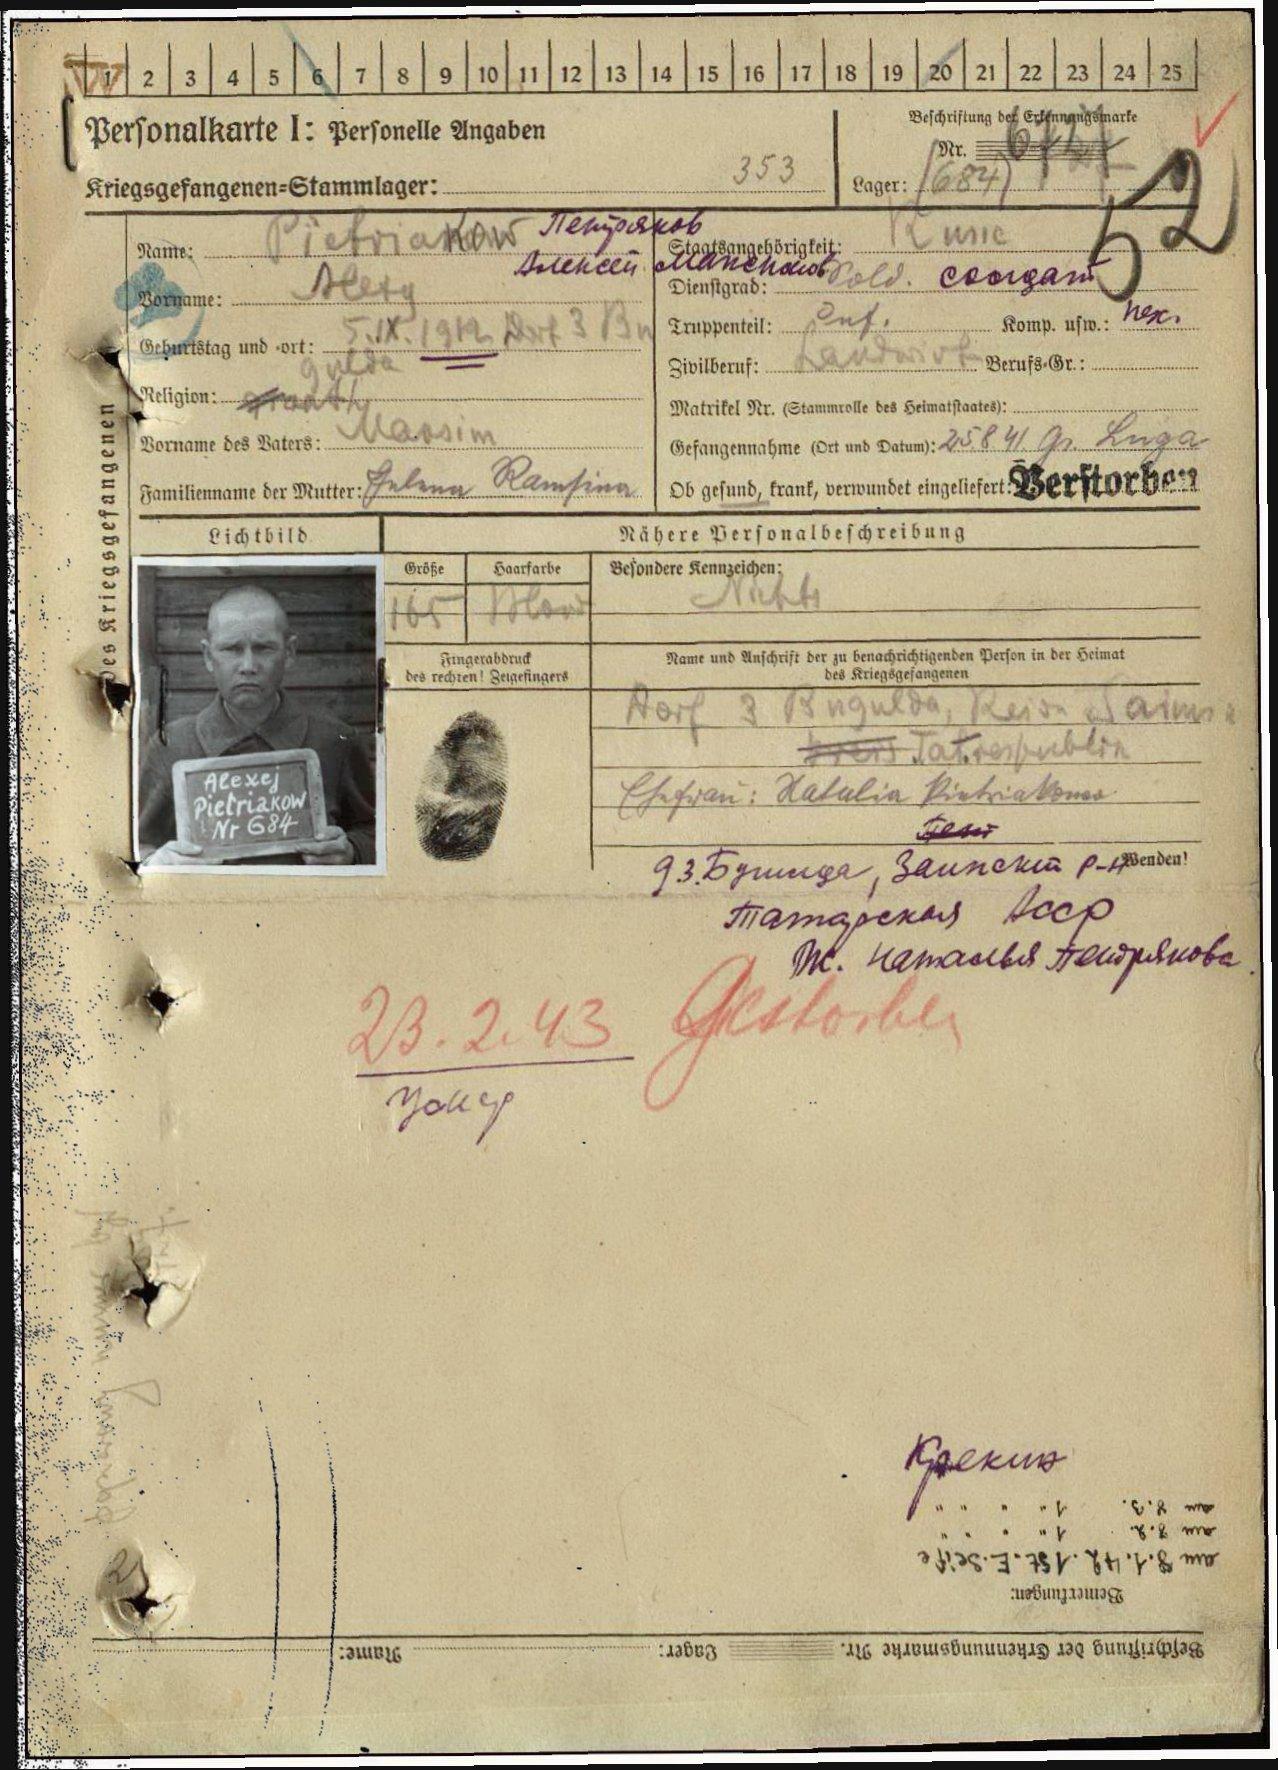 1 2 3 4 5 6 7 8 9 10 11 12 13 14 15 16 17 18 19 20 21 22 23 24 25
Personalkarte I: Personelle Angaben
Beschriftung der Erkennungsmarke
Nr.
Kriegsgefangenen-Stammlager: 353
Lager: (684)
52
Name: Pietriakow Петряков
Алексей Максимов
Vorname: Alexy
Geburtstag und -ort: 5.IX.1912 Dorf 3 Bu
gulda
Religion:
Vorname des Vaters: Maxsim
Familienname der Mutter: Jelena Ramsina
Staatsangehörigkeit: Russe
Dienstgrad: Sold. солдат
Truppenteil: Inf. Komp. usw.: пех.
Zivilberuf: Landwirt Berufs-Gr.:
Matrikel Nr. (Stammrolle des Heimatstaates):
Gefangennahme (Ort und Datum): 25.8.41 Gr. Luga
Ob gesund, krank, verwundet eingeliefert: Verstorben
Des Kriegsgefangenen
Lichtbild
Nähere Personalbeschreibung
Größe Haarfarbe Besondere Kennzeichen:
165 Blond Nichts
Fingerabdruck
des rechten! Zeigefingers
Name und Anschrift der zu benachrichtigenden Person in der Heimat
des Kriegsgefangenen
Dorf 3 Bugulda, Sainsk
Tat.republik
Ehefrau: Natalia Pietriakowa
Alexej
Pietriakow
Nr 684
Wenden!
д 3. Бугулда, Заинский р-н
Татарская АССР
Ж. Наталья Петрякова
23.2.43 Gestorben
умер
Крекин
Beschriftung der Erkennungsmarke Nr. Lager: Name:
Bemerkungen:
am 8.1.42. 1 St. E. Seife
am 8.2. 1 " " " "
am 8.3. 1 " " " "